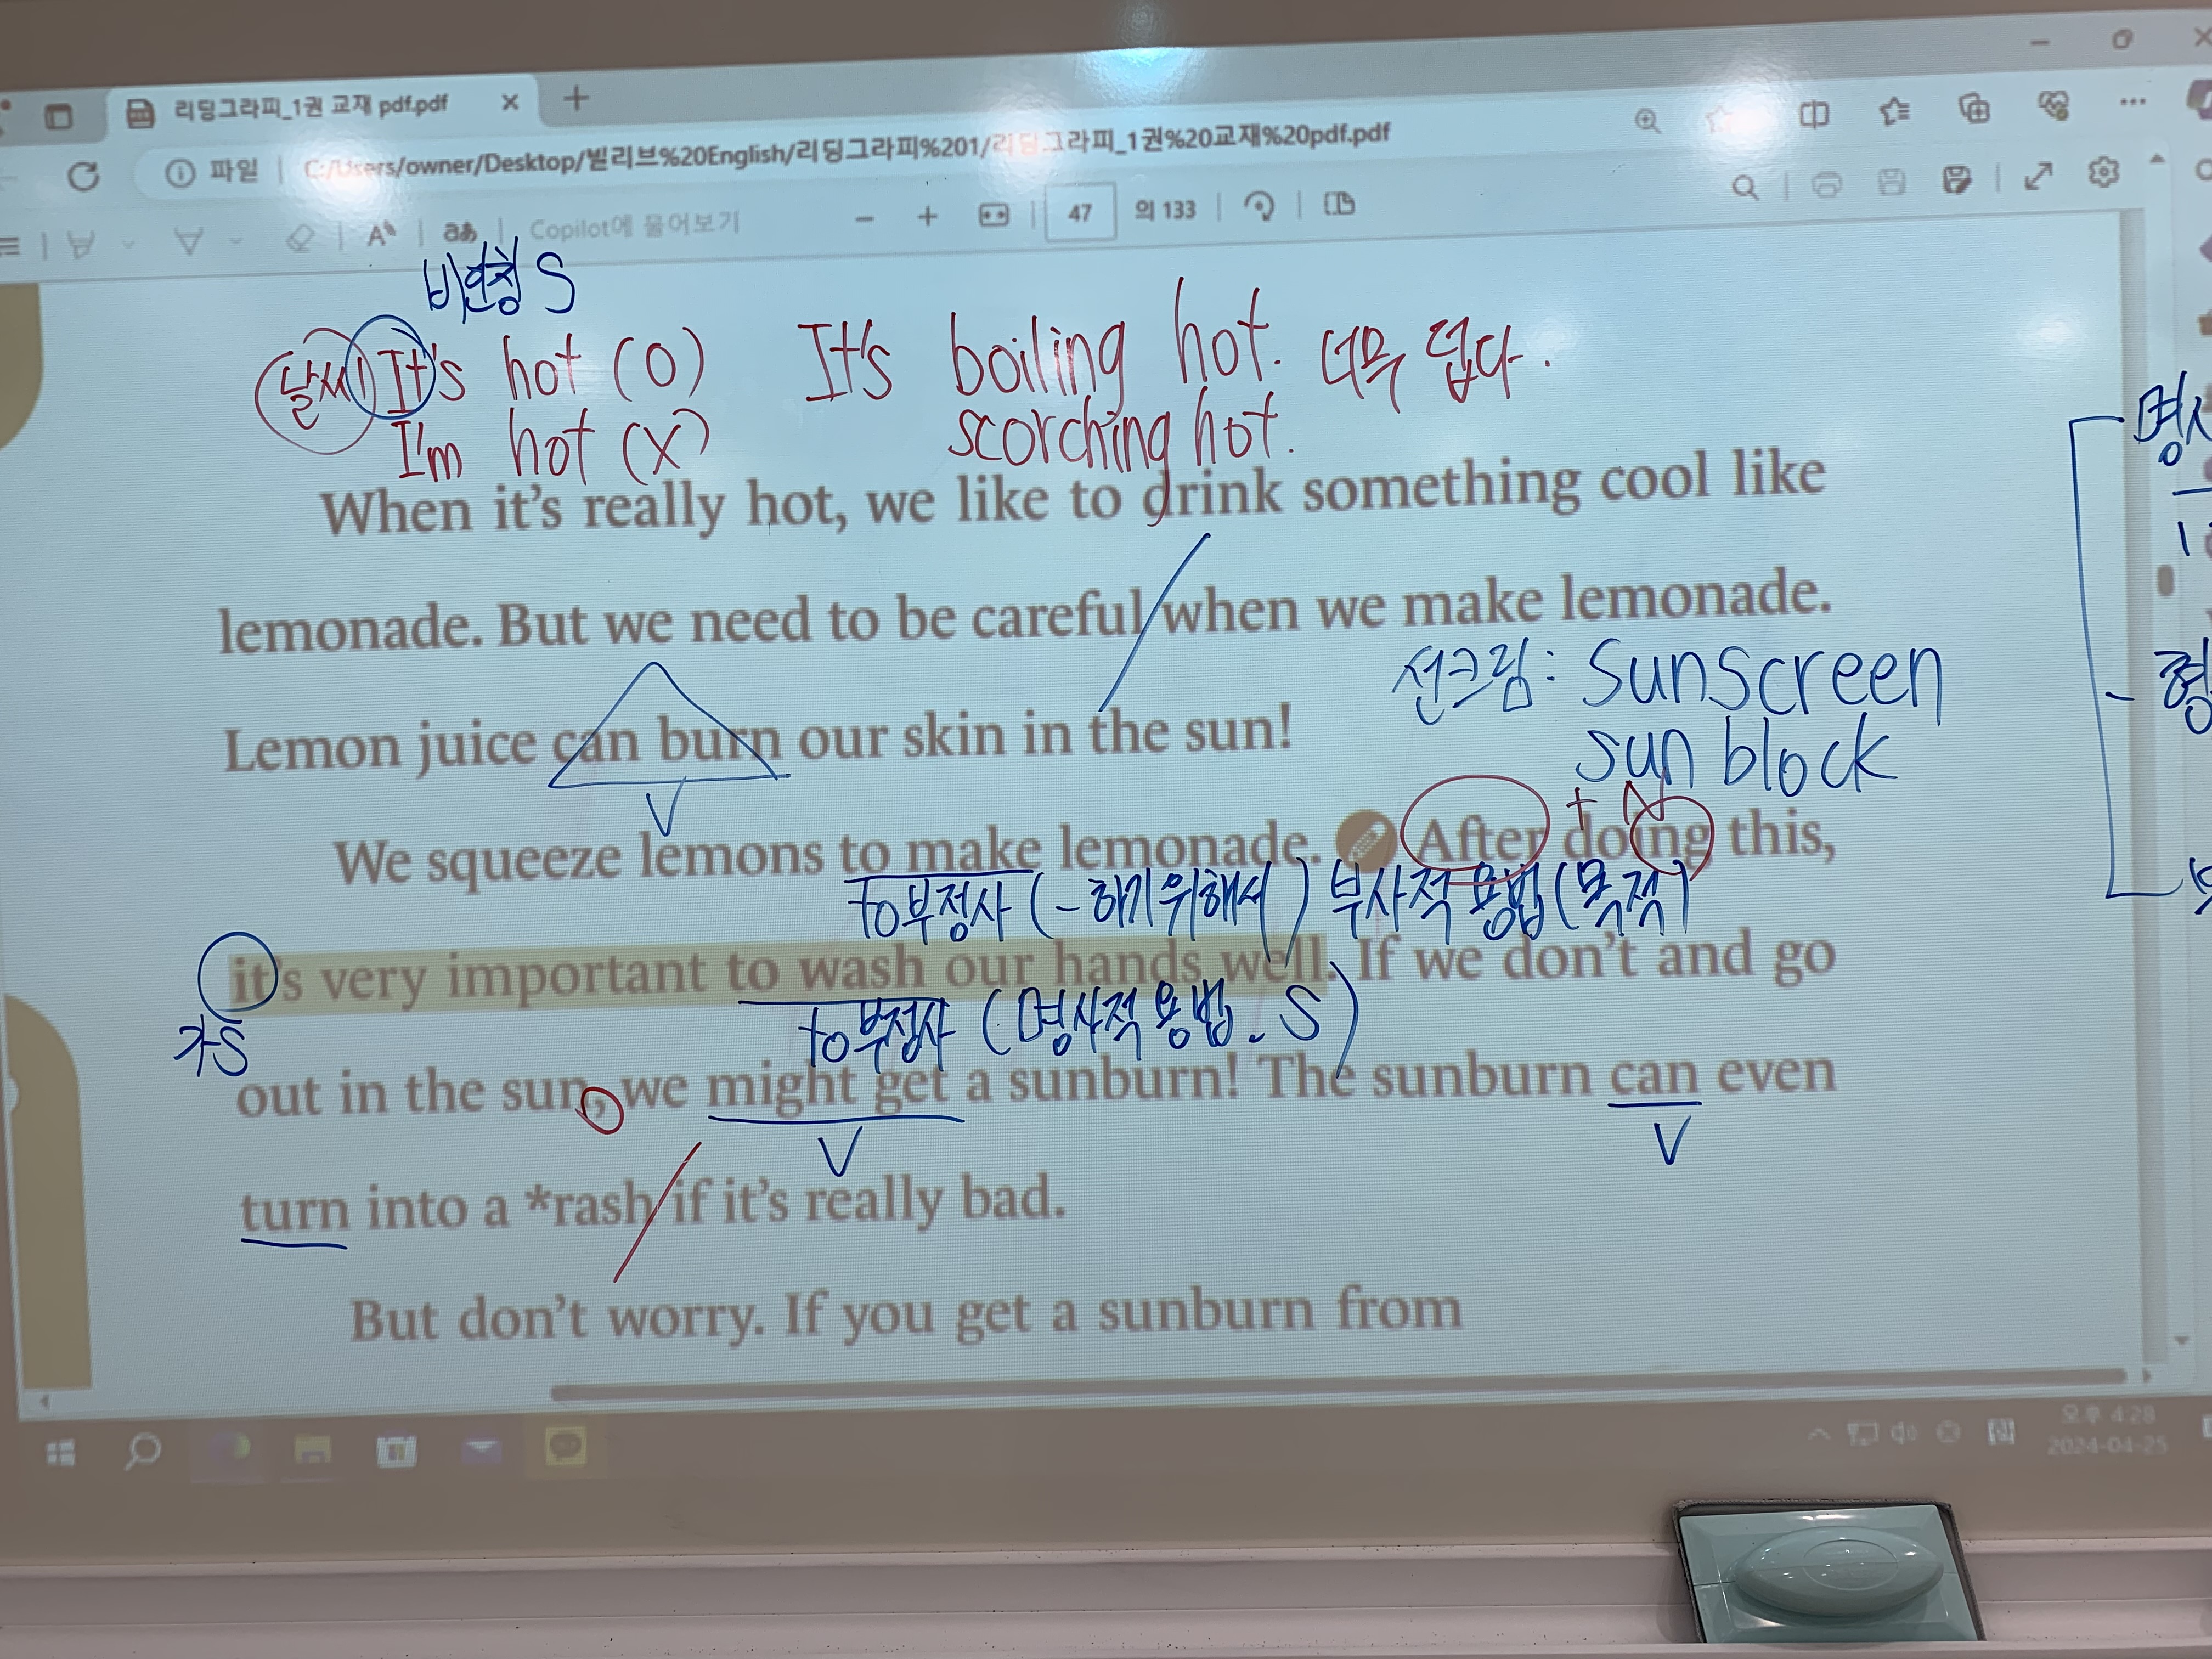 리딩그라피_1권 교재 pdf.pdf
파일 | C:/Users/owner/Desktop/빌리브%20English/리딩그라피%201/리딩그라피_1권%20교재%20pdf.pdf
Copilot에 물어보기
47 의 133
비인칭 S
날씨 It's hot (O) It's boiling hot. 너무 덥다.
I'm hot (X) scorching hot.
When it's really hot, we like to drink something cool like
lemonade. But we need to be careful when we make lemonade.
선크림: sunscreen
Lemon juice can burn our skin in the sun!
sun block
V
+ N
We squeeze lemons to make lemonade. After doing this,
to부정사 (-하기 위해서) 부사적 용법 (목적)
it's very important to wash our hands well. If we don't and go
가S
to부정사 (명사적 용법. S)
out in the sun, we might get a sunburn! The sunburn can even
V
V
turn into a *rash if it's really bad.
But don't worry. If you get a sunburn from
오후 4:28
2024-04-25